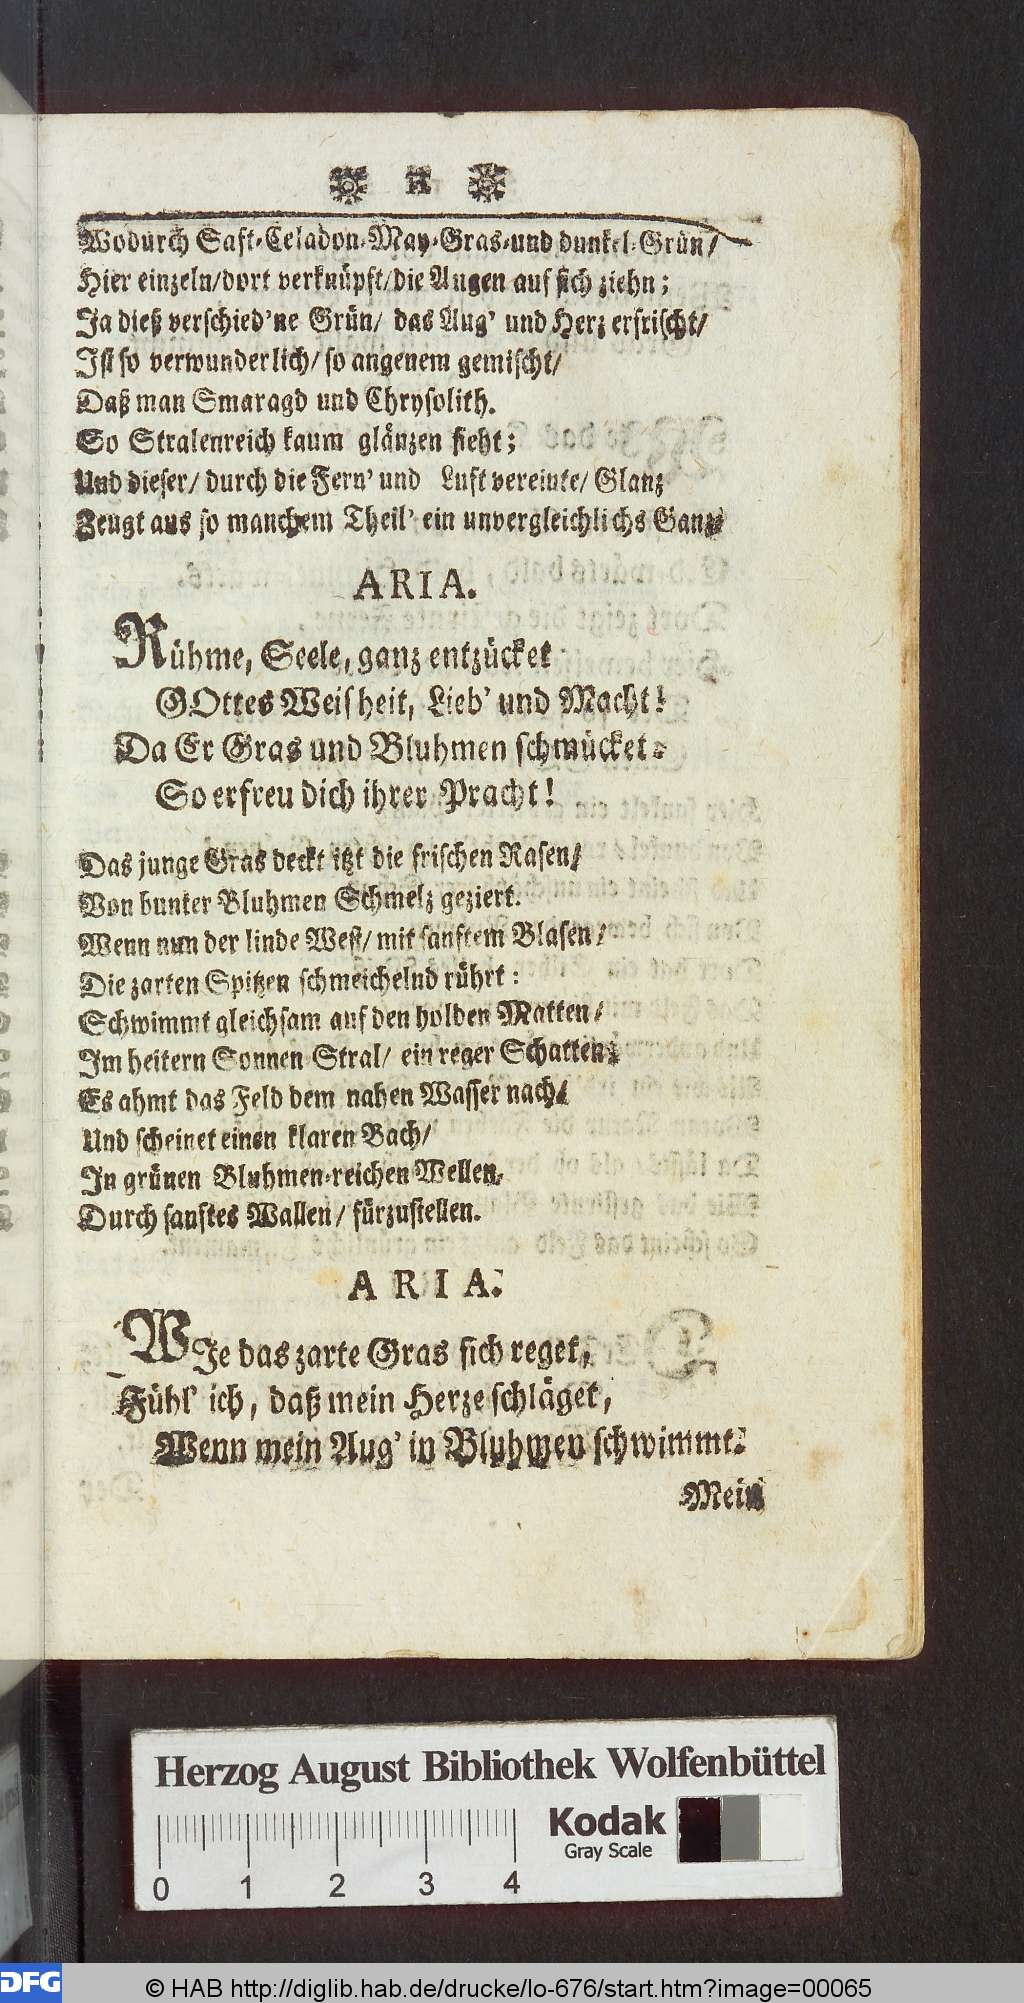 Wodurch Saft-Celadon-May-Gras-und dunkel-Grün/
Hier einzeln/dort verknüpft/die Augen auf sich ziehn;
Ja dieß verschied'ne Grün/ das Aug' und Herz erfrischt/
Ist so verwunderlich/ so angenem gemischt/
Daß man Smaragd und Chrysolith.
So Stralenreich kaum glänzen sieht;
Und dieser/ durch die Fern' und Luft vereinte/ Glanz
Zeugt aus so manchem Theil' ein unvergleichlichs Ganz.
ARIA.
Rühme, Seele, ganz entzücket
GOttes Weisheit, Lieb' und Macht!
Da Er Gras und Bluhmen schmücket:
So erfreu dich ihrer Pracht!
Das junge Gras deckt itzt die frischen Rasen/
Von bunter Bluhmen Schmelz geziert.
Wenn nun der linde West/ mit sanftem Blasen/
Die zarten Spitzen schmeichelnd rührt:
Schwimmt gleichsam auf den holden Matten/
Im heitern Sonnen-Stral/ ein reger Schatten;
Es ahmt das Feld dem nahen Wasser nach/
Und scheinet einen klaren Bach/
In grünen Bluhmen-reichen Wellen,
Durch sanftes Wallen/ fürzustellen.
ARIA.
WJe das zarte Gras sich reget,
Fühl' ich, daß mein Herze schläget,
Wenn mein Aug' in Bluhmen schwimmt.
Mein
Herzog August Bibliothek Wolfenbüttel
Kodak
Gray Scale
0 1 2 3 4
DFG © HAB http://diglib.hab.de/drucke/lo-676/start.htm?image=00065